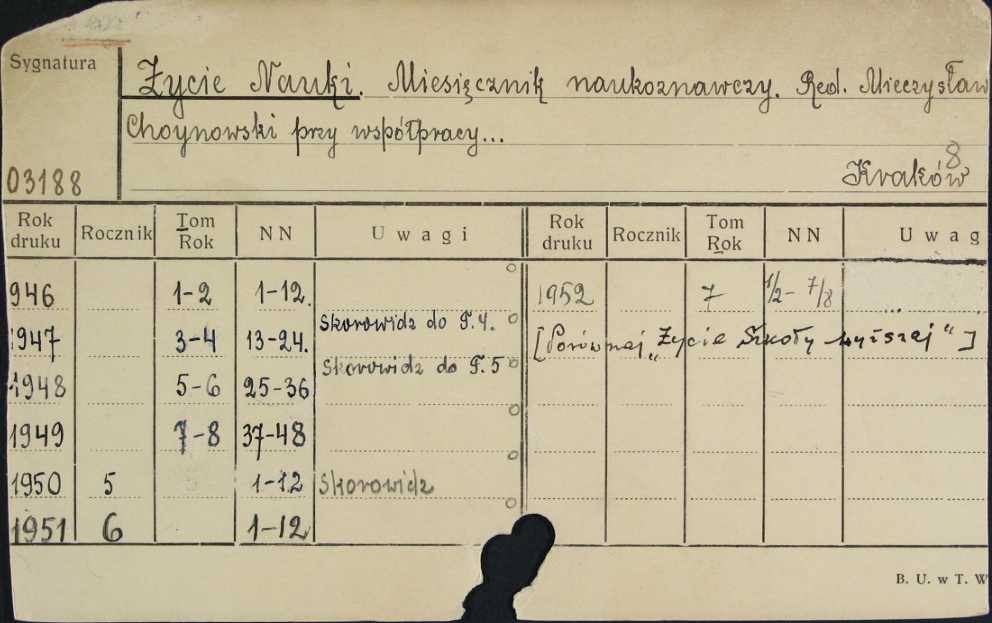 Sygnatura
Życie Nauki. Miesięcznik naukoznawczy. Red. Mieczysław
Choynowski przy współpracy...
8
03188 Kraków
Rok druku Rocznik Tom Rok NN Uwagi Rok druku Rocznik Tom Rok NN Uwag
946 1-2 1-12. 1952 7 1/2-7/8
Skorowidz do T.4.
1947 3-4 13-24. [Porównaj „Życie Szkoły wyższej"]
Skorowidz do T.5
1948 5-6 25-36
1949 7-8 37-48
1950 5 1-12 Skorowidz
1951 6 1-12
B. U. w T. W